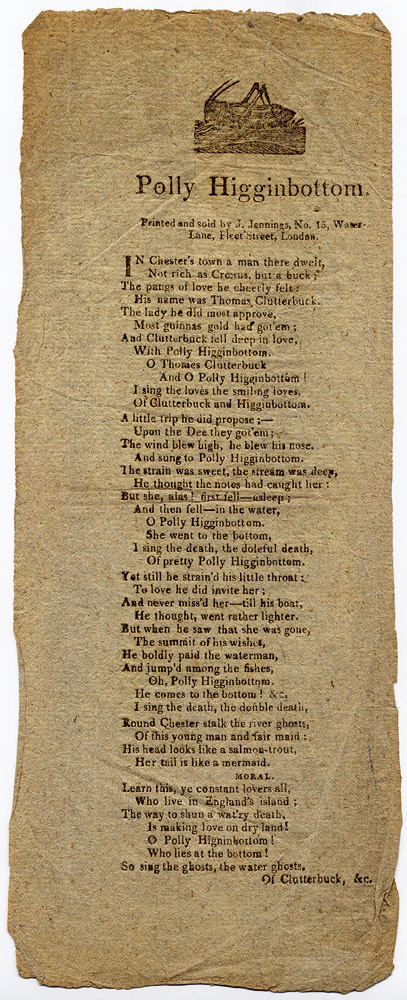 Polly Higginbottom.
Printed and sold by J. Jennings, No. 15, Water-
Lane, Fleet Street, London.
IN Chester's town a man there dwelt,
Not rich as Crœsus, but a buck;
The pangs of love he cheerly felt:
His name was Thomas Clutterbuck.
The lady he did most approve,
Most guinnas gold had got'em;
And Clutterbuck fell deep in love,
With Polly Higginbottom.
O Thomas Clutterbuck
And O Polly Higginbottom!
I sing the loves the smiling loves,
Of Clutterbuck and Higginbottom.
A little trip he did propose:—
Upon the Dee they got'em;
The wind blew high, he blew his nose.
And sung to Polly Higginbottom.
The strain was sweet, the stream was deep,
He thought the notes had caught her:
But she, alas! first fell—asleep;
And then fell—in the water,
O Polly Higginbottom.
She went to the bottom,
I sing the death, the doleful death,
Of pretty Polly Higginbottom.
Yet still he strain'd his little throat:
To love he did invite her;
And never miss'd her—till his boat,
He thought, went rather lighter.
But when he saw that she was gone,
The summit of his wishes,
He boldly paid the waterman,
And jump'd among the fishes,
Oh, Polly Higginbottom.
He comes to the bottom! &c.
I sing the death, the double death,
Round Chester stalk the river ghosts,
Of this young man and fair maid:
His head looks like a salmon-trout,
Her tail is like a mermaid.
MORAL.
Learn this, ye constant lovers all,
Who live in England's island;
The way to shun a wat'ry death,
Is making love on dry land!
O Polly Higninbottom!
Who lies at the bottom!
So sing the ghosts, the water ghosts,
Of Clutterbuck, &c.